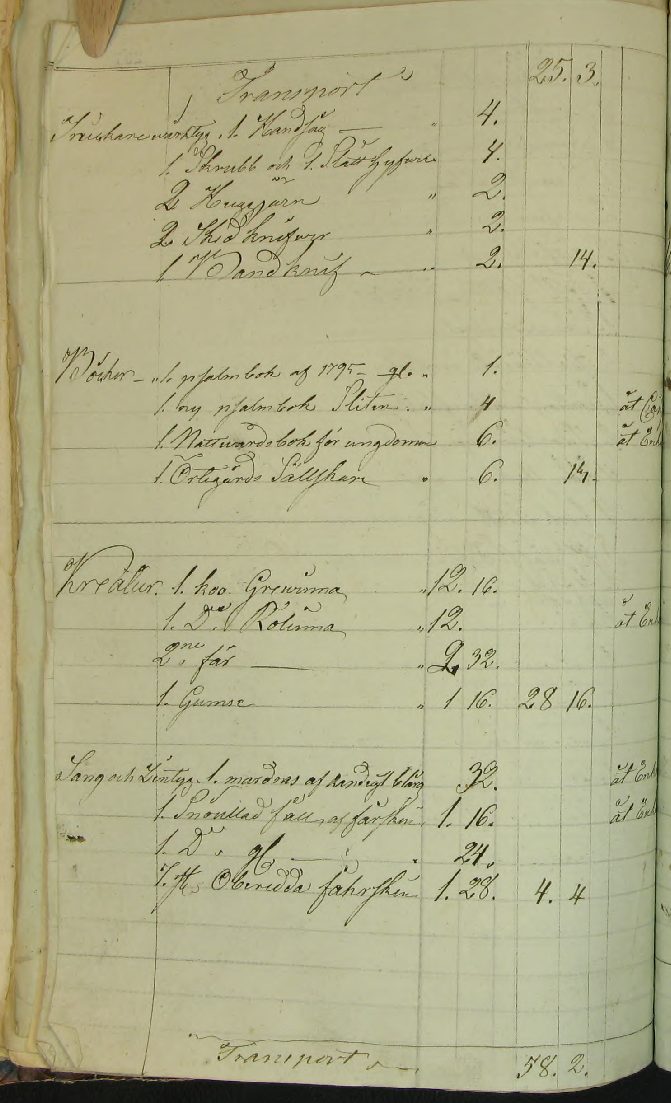 Transport 25. 3.
Snickare värktyg. 1. Handsåg — " 4.
1. Skrubb och 1. Slätt 4.
2 Huggjärn " 2.
2 Skedknifvar " 2.
1 Bandknif " 2. 14.
Böcker — " 1. psalmbok af 1795 — gl. " 1.
1. ny psalmbok Sliten. " 4 åt
1. Nattvardsbok för ungdomen 6. åt Enk
1. Örtegårds Sällskare " 6. 17.
Kreatur. 1. koo Grewinna " 12. 16.
1. Do Rölinna " 12. åt Enk
2ne får — " 2. 32.
1. Gumse " 1 16. 28 16.
Säng och Lintyg. 1. madras af randigt blång 32. åt Enk
1. Snöullad fäll af fårskin 1. 16. åt Enk
1. Do gl — " 24.
7. st. Oberedda fåhrskin 1. 28. 4. 4
Transport 58. 2.